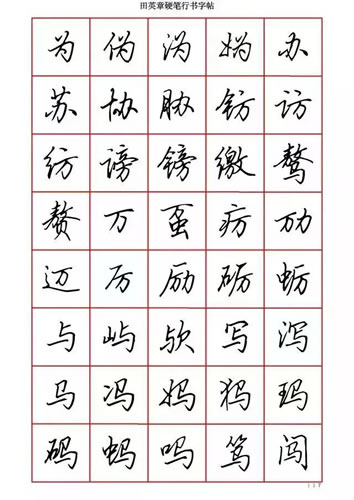 田英章硬笔行书字帖
为 伪 沩 妫 办
苏 协 胁 钫 访
纺 谤 镑 缴 骜
赘 万 虿 疠 劢
迈 厉 励 砺 蛎
与 屿 欤 写 泻
马 冯 妈 犸 玛
码 蚂 吗 笃 闯